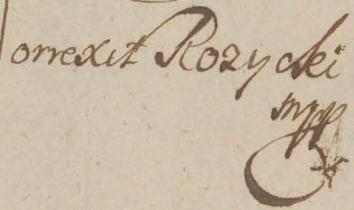 orrexit Rozycki
mpp